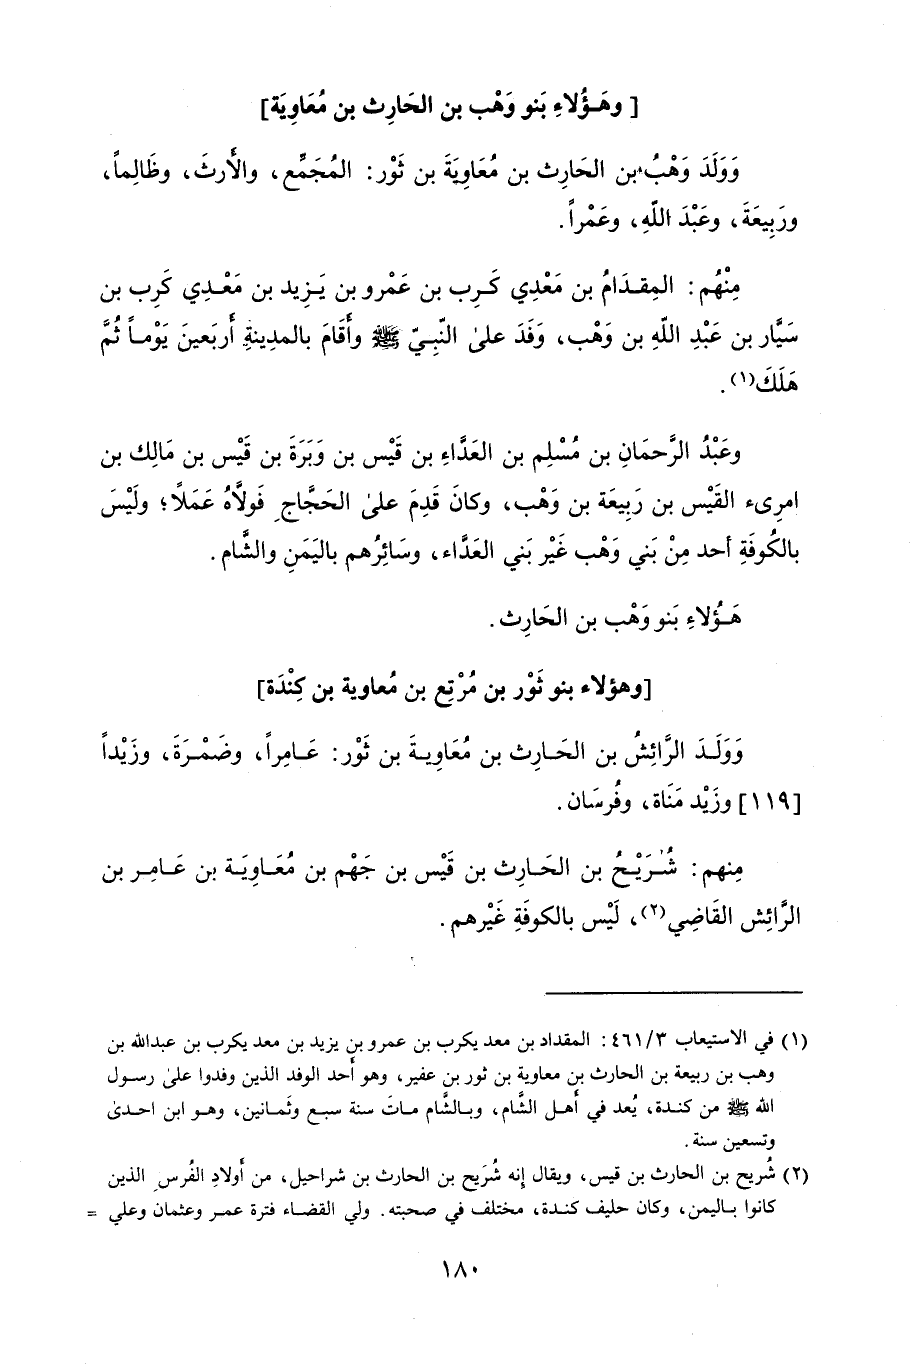 [ وهَـؤُلاءِ بَنو وَهْب بن الحَارِث بن مُعَاوِيَة]
وَوَلَدَ وَهْبُ بن الحَارِث بن مُعَاوِيَةَ بن ثَوْر: المُجَمِّع، والأَرثَ، وظَالِماً،
ورَبِيعَةَ، وعَبْدَ اللّهِ، وعَمْراً.
مِنْهُم: المِقدَامُ بن مَعْدِي كَـرِب بن عَمْرو بن يَـزِيد بن مَعْـدِي كَرِب بن
سَيَّار بن عَبْدِ اللّهِ بن وَهْب، وَفَدَ علىٰ النَّبِـيّ ﷺ وأَقَامَ بالمدِينةِ أَربَعينَ يَوْمـاً ثُمَّ
هَلَكَ(١).
وعَبْدُ الرَّحمَانِ بن مُسْلِم بن العَدَّاءِ بن قَيْس بن وَبَرَةَ بن قَيْس بن مَالِك بن
امرِىء القَيْس بن رَبِيعَة بن وَهْب، وكانَ قَدِمَ علىٰ الحَجَّاجِ فَولَّاهُ عَمَلًا؛ ولَيْسَ
بالكُوفَةِ أحد مِنْ بَني وَهْب غَيْر بَني العَدَّاء، وسَائِرُهم باليَمَنِ والشَّام.
هَـؤُلاءِ بَنو وَهْب بن الحَارِث.
[وهؤلاء بنو ثَوْر بن مُرْتِع بن مُعاوية بن كِنْدَة]
وَوَلَـدَ الرَّائِشُ بن الحَـارِث بن مُعَاوِيـةَ بن ثَوْر: عَـامِراً، وضَمْـرَةَ، وزَيْداً
[١١٩] وزَيْد مَنَاة، وفُرسَان.
مِنهم: شُـرَيْـحُ بن الحَـارِث بن قَيْس بن جَهْم بن مُعَـاوِيَـة بن عَـامِـر بن
الرَّائِش القَاضِي(٢)، لَيْس بالكوفَةِ غَيْرهم.
(١) في الاستيعاب ٤٦١/٣: المقداد بن معد يكرب بن عمرو بن يزيد بن معد يكرب بن عبدالله بن
وهب بن ربيعة بن الحارث بن معاوية بن ثور بن عفير، وهو أحد الوفد الذين وفدوا علىٰ رسول
الله ﷺ من كنـدة، يُعد في أهـل الشَّام، وبـالشَّام مـاتَ سنة سبـع وثَمـانين، وهـو ابن احـدىٰ
وتسعين سنة.
(٢) شُريح بن الحارث بن قيس، ويقال إنه شُرَيح بن الحارث بن شراحيل، من أَولادِ الفُرسِ الذين
كانوا بـاليمن، وكان حليف كنـدة، مختلف في صحبته. ولي القضـاء فترة عمـر وعثمان وعلي =
١٨٠